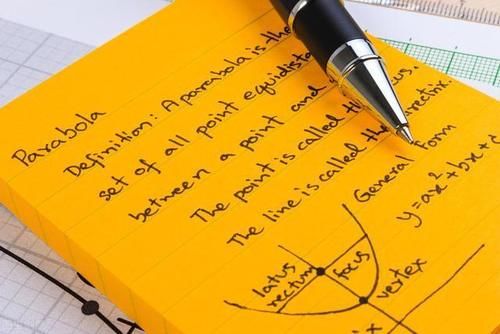 Parabola
Definition: A parabola is the
set of all point equidista
between a point and
The point is called the
The line is called the
General form
y=ax²+bx+c
latus
rectum
focus
vertex